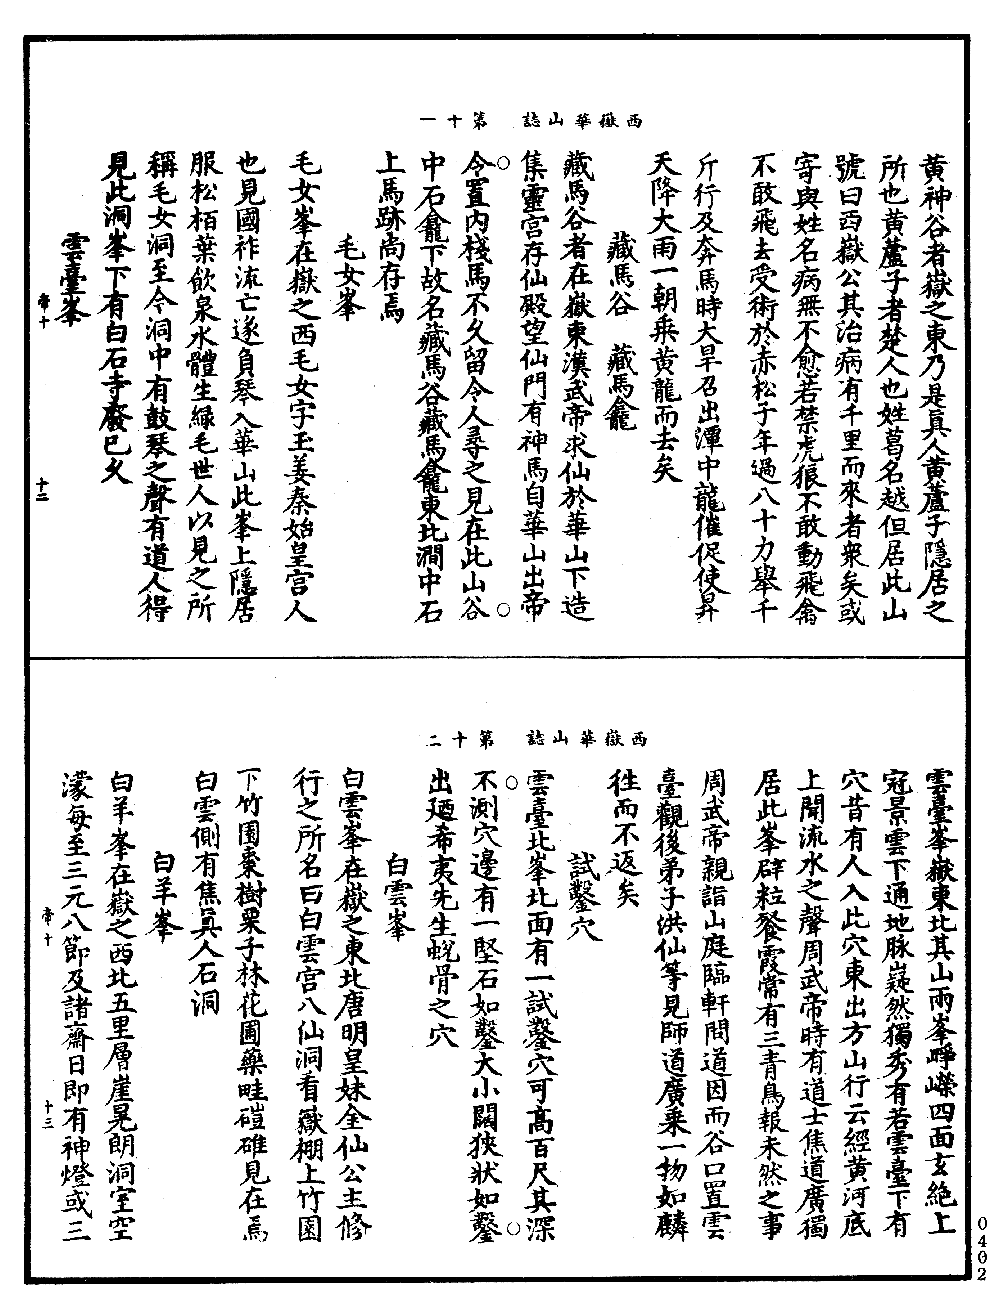 西嶽華山誌　第十一
黄神谷者嶽之東乃是真人黄蘆子隱居之
所也黄蘆子者楚人也姓葛名越但居此山
號曰西嶽公其治病有千里而來者衆矣或
寄與姓名病無不愈若禁虎狼不敢動飛禽
不敢飛去受術於赤松子年過八十力舉千
斤行及奔馬時大旱召出潭中龍催促使昇
天降大雨一朝乘黄龍而去矣
藏馬谷　藏馬龕
藏馬谷者在嶽東漢武帝求仙於華山下造
集靈宫存仙殿望仙門有神馬自華山出帝
令置内棧馬不久留令人尋之見在此山谷
中石龕下故名藏馬谷藏馬龕東北澗中石
上馬跡尚存焉
毛女峯
毛女峯在嶽之西毛女字玉姜秦始皇宫人
也見國祚流亡遂負琴入華山此峯上隱居
服松栢葉飲泉水體生緑毛世人以見之所
稱毛女洞至今洞中有鼓琴之聲有道人得
見此洞峯下有白石寺廢已久
雲臺峯
帝十
十二
西嶽華山誌　第十二
雲臺峯嶽東北其山兩峯崢嶸四面玄絶上
冠景雲下通地脉嶷然獨秀有若雲臺下有
穴昔有人入此穴東出方山行云經黄河底
上聞流水之聲周武帝時有道士焦道廣獨
居此峯辟粒餐霞常有三青鳥報未然之事
周武帝親詣山庭臨軒問道因而谷口置雲
臺觀後弟子洪仙等見師道廣乘一物如麟
徃而不返矣
試鑿穴
雲臺北峯北面有一試鑿穴可高百尺其深
不測穴邊有一堅石如鑿大小闊狹狀如鑿
出廼希夷先生蜕骨之穴
白雲峯
白雲峯在嶽之東北唐明皇妹金仙公主修
行之所名曰白雲宫八仙洞看嶽棚上竹園
下竹園棗樹栗子林花圃藥畦磑碓見在焉
白雲側有焦真人石洞
白羊峯
白羊峯在嶽之西北五里層崖晃朗洞室空
濛每至三元八節及諸齋日即有神燈或三
帝十
十三
0402